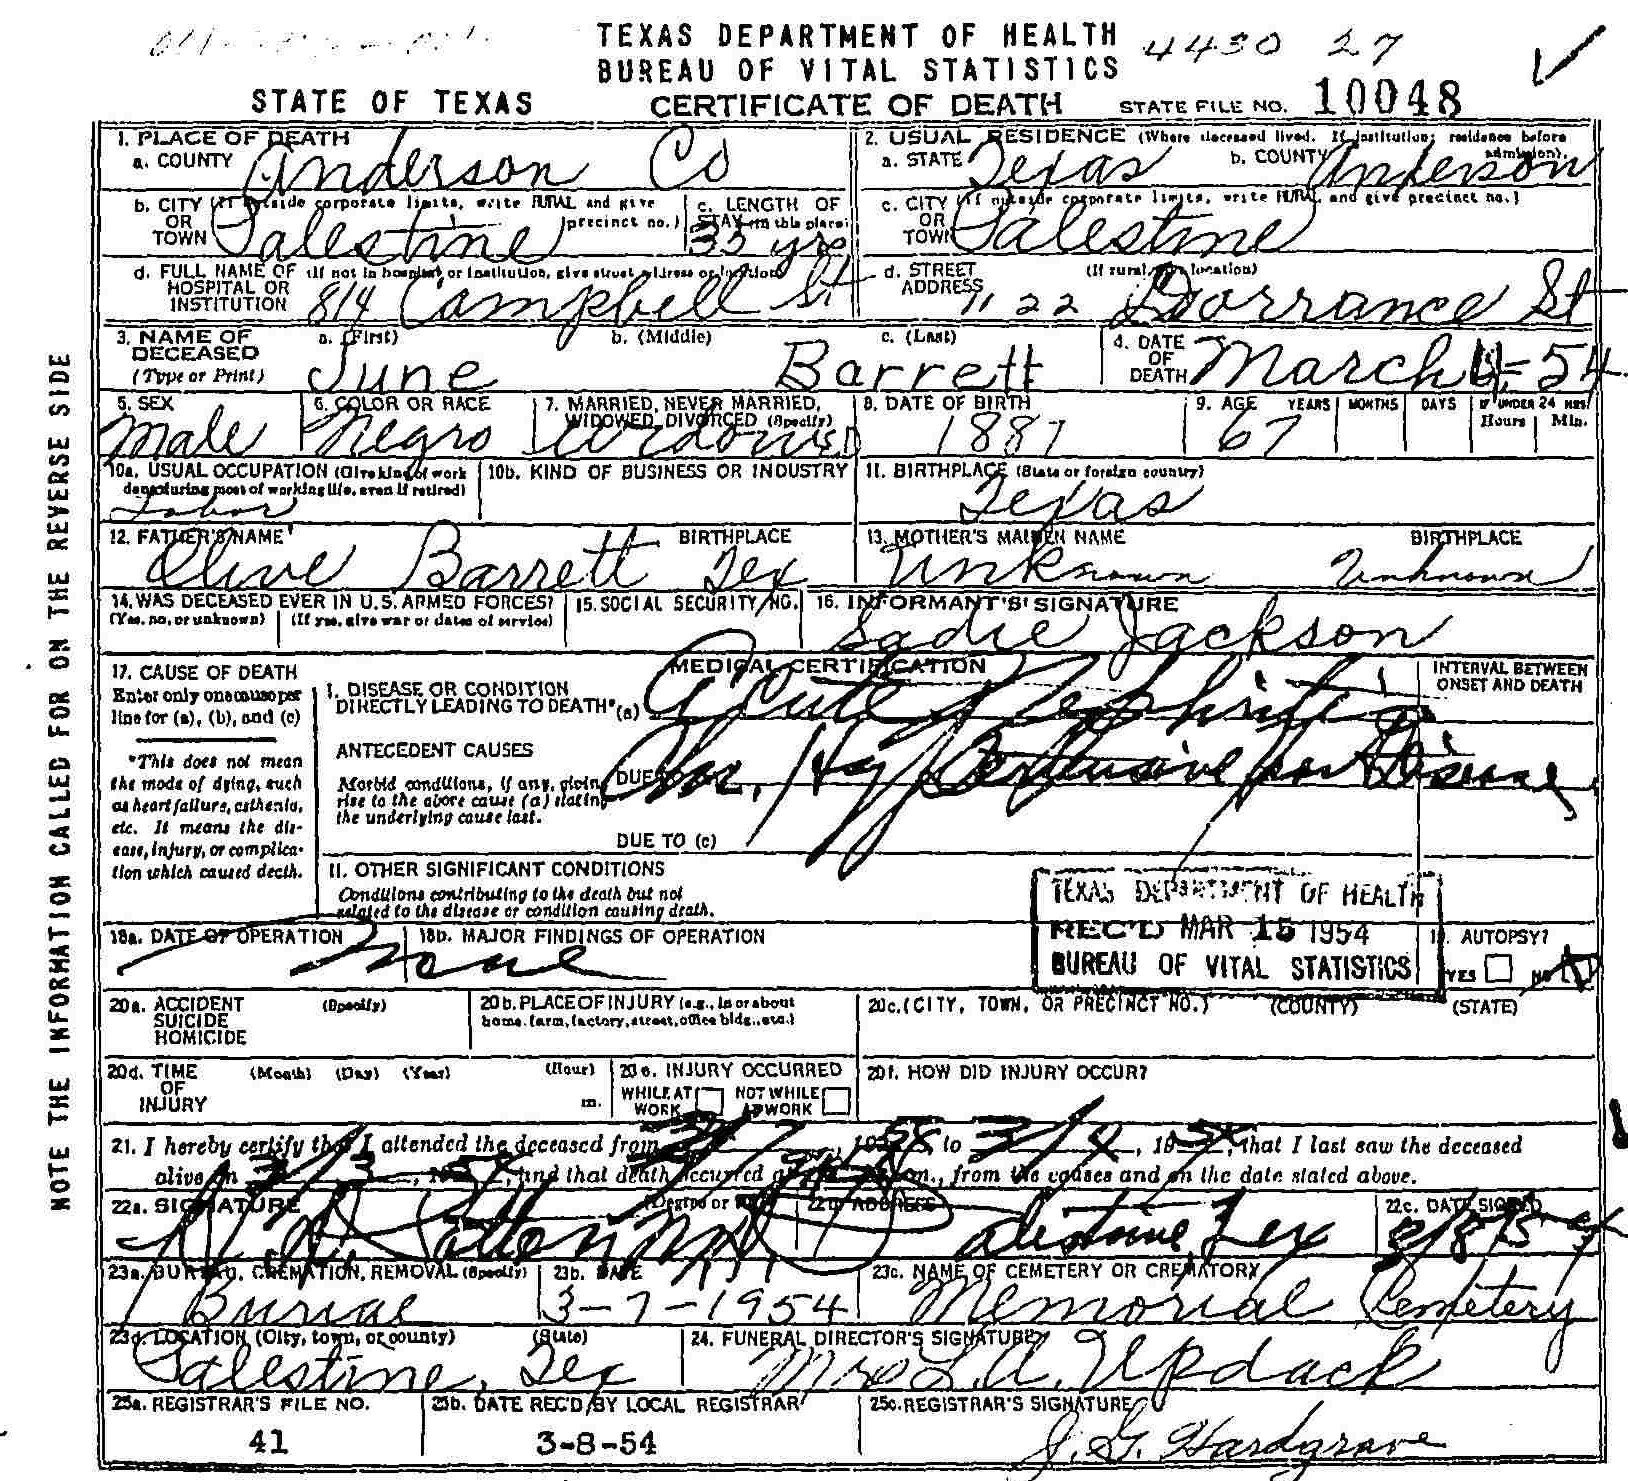 TEXAS DEPARTMENT OF HEALTH 4430 27
BUREAU OF VITAL STATISTICS
STATE OF TEXAS CERTIFICATE OF DEATH STATE FILE NO. 10048
NOTE THE INFORMATION CALLED FOR ON THE REVERSE SIDE
1. PLACE OF DEATH
a. COUNTY Anderson Co
2. USUAL RESIDENCE (Where deceased lived. If institution: residence before admission).
a. STATE Texas b. COUNTY Anderson
b. CITY (If outside corporate limits, write RURAL and give precinct no.)
OR
TOWN Palestine
c. LENGTH OF
STAY (in this place)
35 yrs
c. CITY (If outside corporate limits, write RURAL and give precinct no.)
OR
TOWN Palestine
d. FULL NAME OF (If not in hospital or institution, give street address or location)
HOSPITAL OR
INSTITUTION 814 Campbell St
d. STREET (If rural, give location)
ADDRESS 1122 Dorrance St
3. NAME OF a. (First) b. (Middle) c. (Last)
DECEASED
(Type or Print) June Barrett
4. DATE
OF
DEATH March 4-54
5. SEX
Male
6. COLOR OR RACE
Negro
7. MARRIED, NEVER MARRIED,
WIDOWED, DIVORCED (Specify)
Widowed
8. DATE OF BIRTH
1887
9. AGE YEARS MONTHS DAYS IF UNDER 24 HRS.
Hours Min.
67
10a. USUAL OCCUPATION (Give kind of work
done during most of working life, even if retired)
Labor
10b. KIND OF BUSINESS OR INDUSTRY
11. BIRTHPLACE (State or foreign country)
Texas
12. FATHER'S NAME BIRTHPLACE
Olive Barrett Tex
13. MOTHER'S MAIDEN NAME BIRTHPLACE
Unknown Unknown
14. WAS DECEASED EVER IN U.S. ARMED FORCES?
(Yes, no, or unknown) (If yes, give war or dates of service)
15. SOCIAL SECURITY NO.
16. INFORMANT'S SIGNATURE
Sadie Jackson
17. CAUSE OF DEATH
Enter only one cause per
line for (a), (b), and (c)
*This does not mean
the mode of dying, such
as heart failure, asthenia,
etc. It means the dis-
ease, injury, or complica-
tion which caused death.
MEDICAL CERTIFICATION
INTERVAL BETWEEN
ONSET AND DEATH
I. DISEASE OR CONDITION
DIRECTLY LEADING TO DEATH*(a) Acute Nephritis
ANTECEDENT CAUSES
Morbid conditions, if any, giving
rise to the above cause (a) stating
the underlying cause last.
DUE TO (b) Chr. Hypertensive Disease
DUE TO (c)
II. OTHER SIGNIFICANT CONDITIONS
Conditions contributing to the death but not
related to the disease or condition causing death.
TEXAS DEPARTMENT OF HEALTH
REC'D MAR 15 1954
BUREAU OF VITAL STATISTICS
18a. DATE OF OPERATION
None
18b. MAJOR FINDINGS OF OPERATION
19. AUTOPSY?
YES NO
20a. ACCIDENT (Specify)
SUICIDE
HOMICIDE
20b. PLACE OF INJURY (e.g., in or about
home, farm, factory, street, office bldg., etc.)
20c. (CITY, TOWN, OR PRECINCT NO.) (COUNTY) (STATE)
20d. TIME (Month) (Day) (Year) (Hour)
OF
INJURY m.
20e. INJURY OCCURRED
WHILE AT WORK NOT WHILE AT WORK
20f. HOW DID INJURY OCCUR?
21. I hereby certify that I attended the deceased from , 19 to 3/4, 1954, that I last saw the deceased
alive on 3/3, 1954, and that death occurred at m., from the causes and on the date stated above.
22a. SIGNATURE (Degree or title)
22b. ADDRESS
Palestine, Tex
22c. DATE SIGNED
3/8/54
23a. BURIAL, CREMATION, REMOVAL (Specify)
Burial
23b. DATE
3-7-1954
23c. NAME OF CEMETERY OR CREMATORY
Memorial Cemetery
23d. LOCATION (City, town, or county) (State)
Palestine, Tex
24. FUNERAL DIRECTOR'S SIGNATURE
Mrs L.A. Updack
25a. REGISTRAR'S FILE NO.
41
25b. DATE REC'D BY LOCAL REGISTRAR
3-8-54
25c. REGISTRAR'S SIGNATURE
J. G. Hardgrave